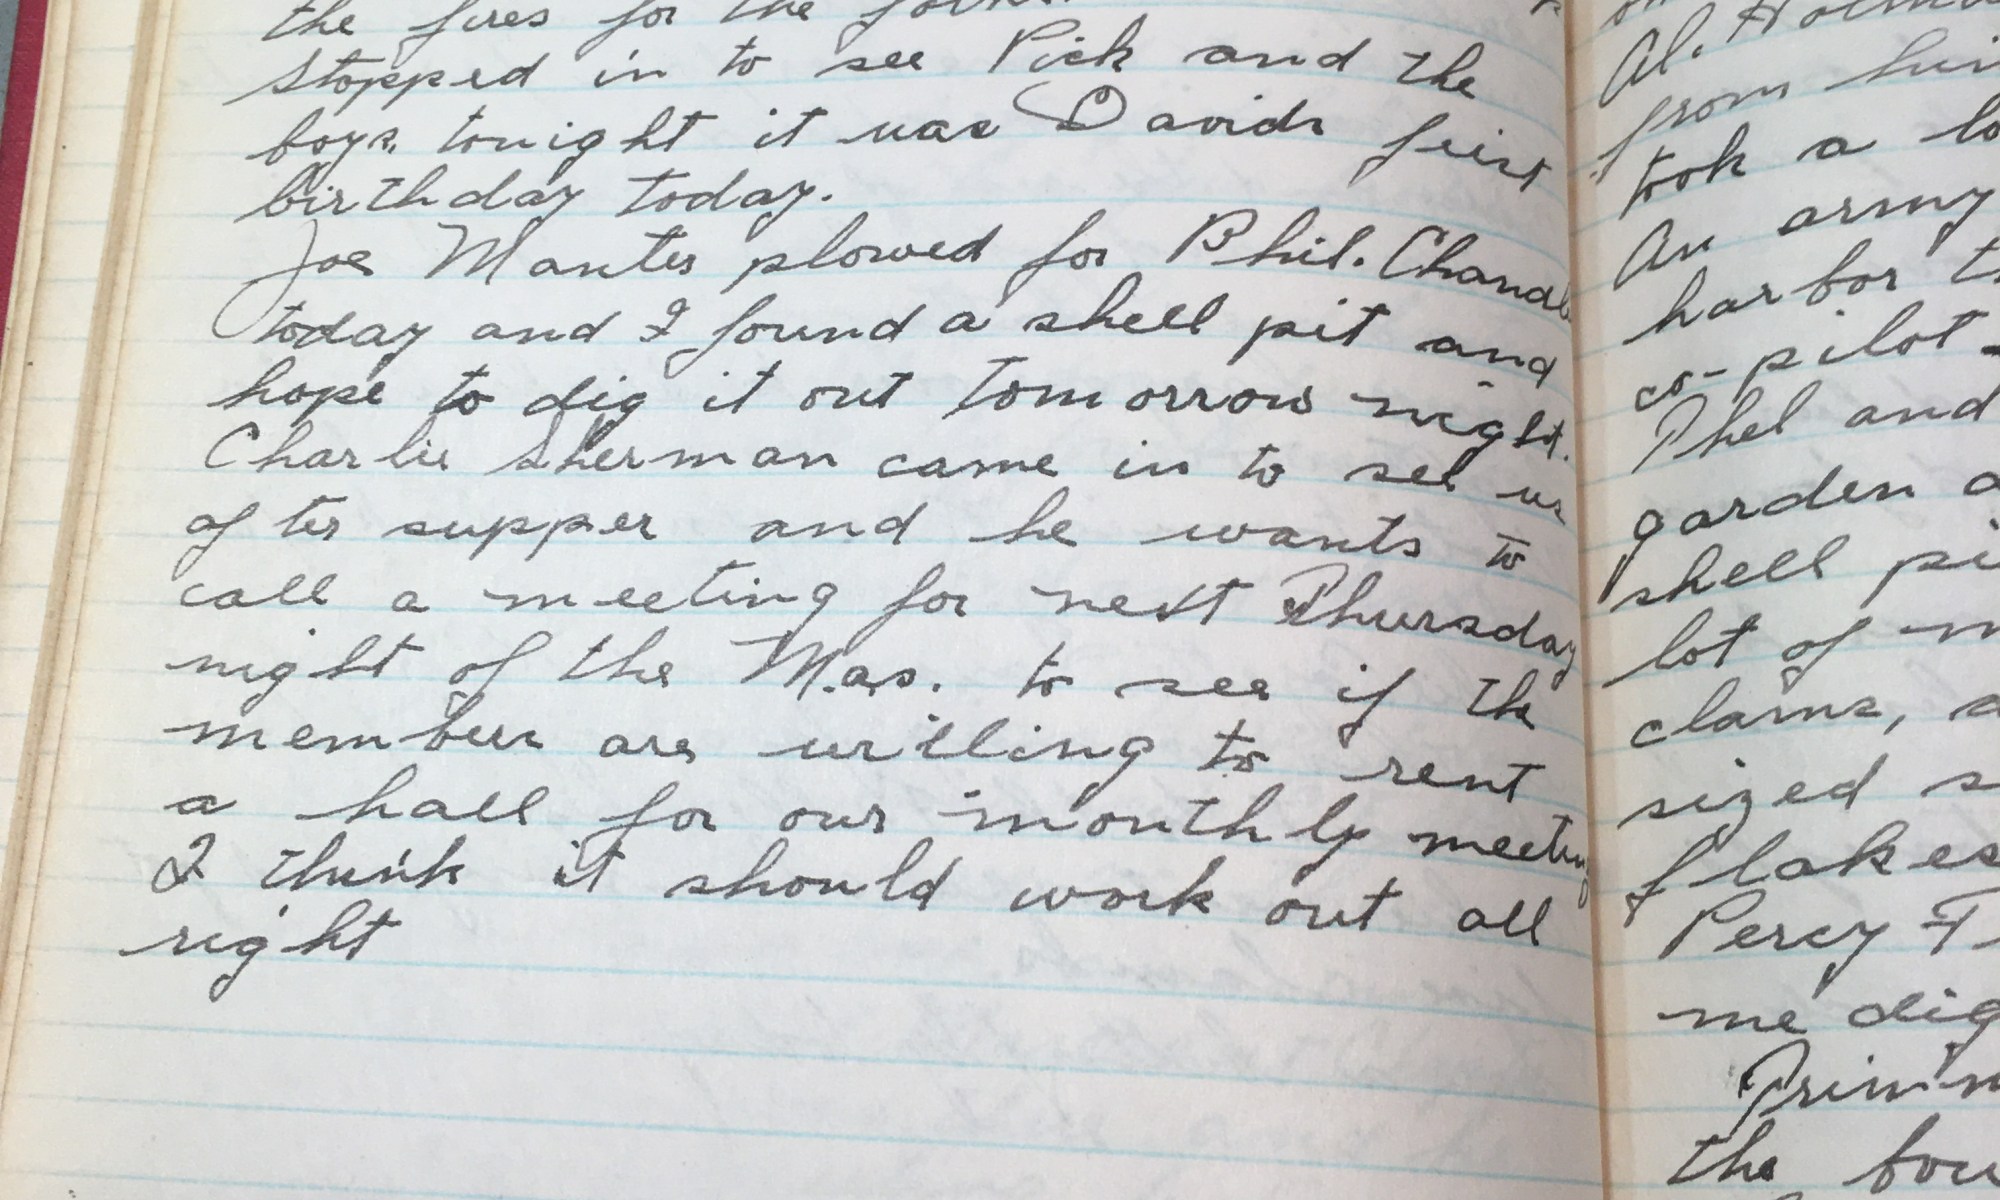 the fires for the
Stopped in to see Pick and the
boys. tonight it was Davids first
birthday today.
Joe Mantes plowed for Phil. Chandl
today and I found a shell pit and
hope to dig it out tomorrow night.
Charlie Sherman came in to see us
after supper and he wants to
call a meeting for next Thursday
night of the M.a.s. to see if the
members are willing to rent
a hall for our monthly meeting
I think it should work out all
right
Al.
from him
took a lo
An army
harbor th
co-pilot
Phil and
garden a
shell pi
lot of m
clams, a
sized s
flakes
Percy
me dig
the